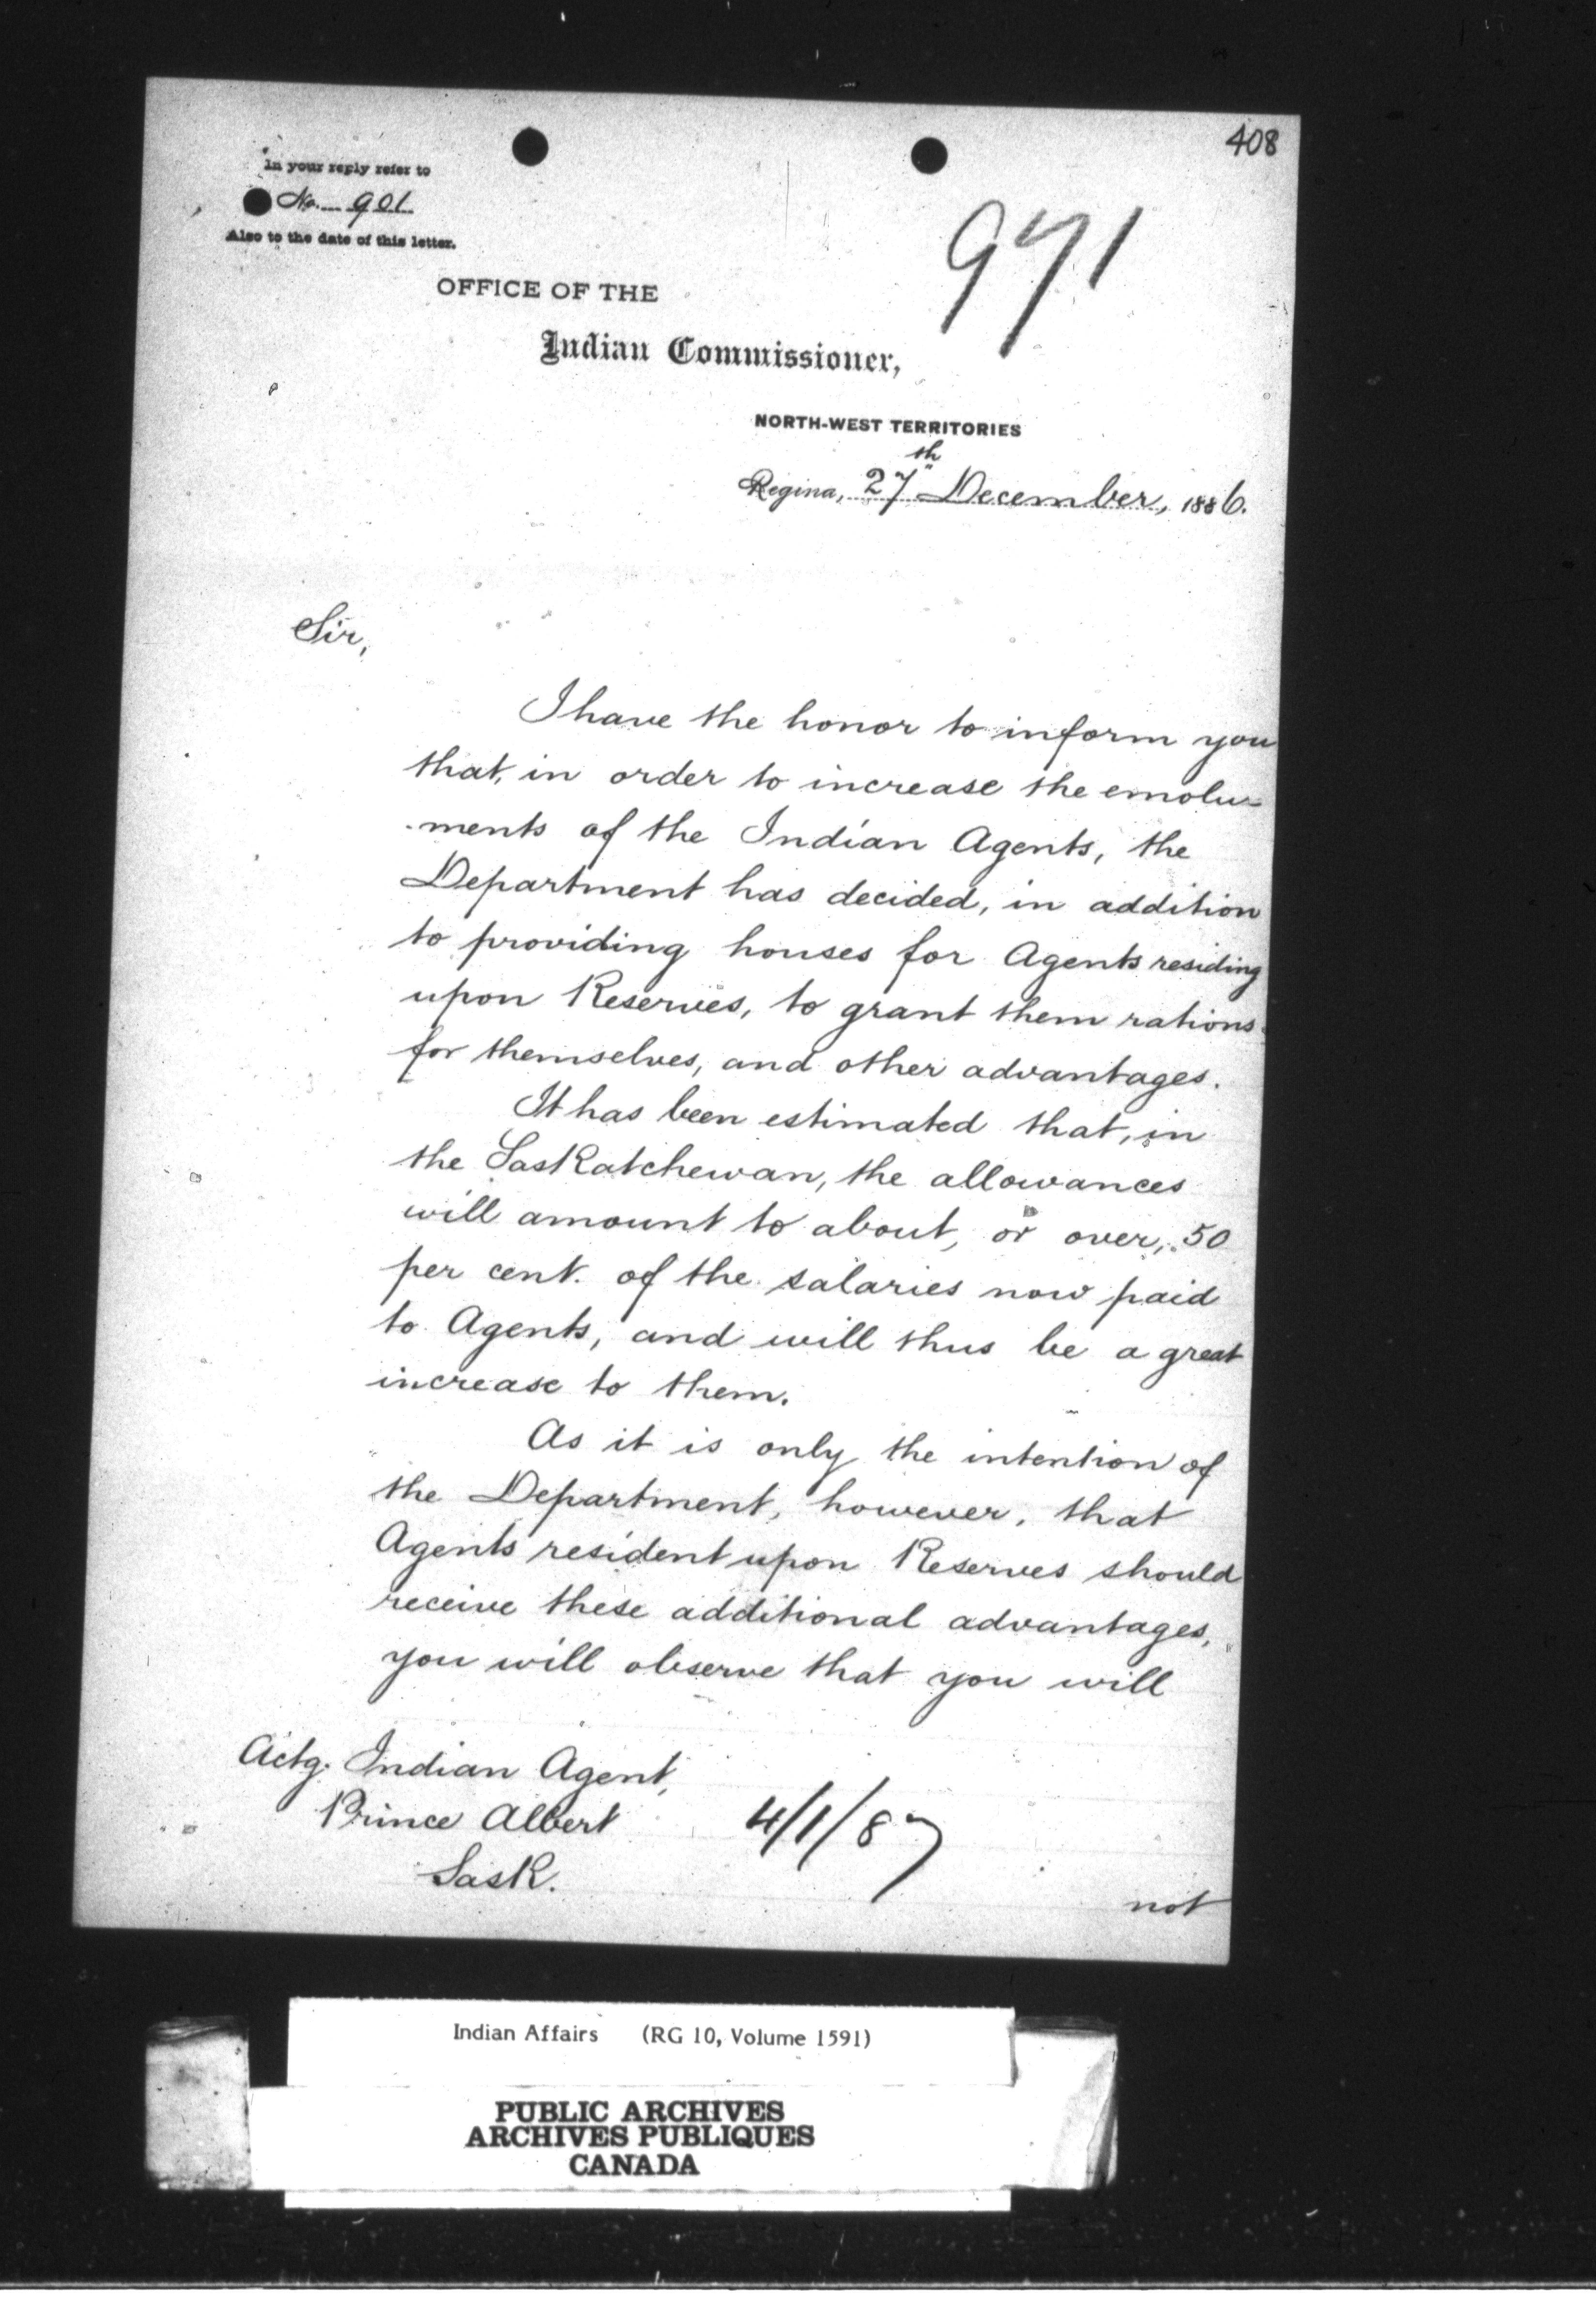 408
In your reply refer to
No. 901
Also to the date of this letter.
971
OFFICE OF THE
Indian Commissioner,
NORTH-WEST TERRITORIES
Regina, 27th December, 1886.
Sir,
I have the honor to inform you
that, in order to increase the emolu-
-ments of the Indian Agents, the
Department has decided, in addition
to providing houses for Agents residing
upon Reserves, to grant them rations
for themselves, and other advantages.
It has been estimated that, in
the Saskatchewan, the allowances
will amount to about, or over, 50
per cent. of the salaries now paid
to Agents, and will thus be a great
increase to them.
As it is only the intention of
the Department, however, that
Agents resident upon Reserves should
receive these additional advantages,
you will observe that you will
Actg. Indian Agent,
Prince Albert
Sask.
4/1/87
not
Indian Affairs (RG 10, Volume 1591)
PUBLIC ARCHIVES
ARCHIVES PUBLIQUES
CANADA